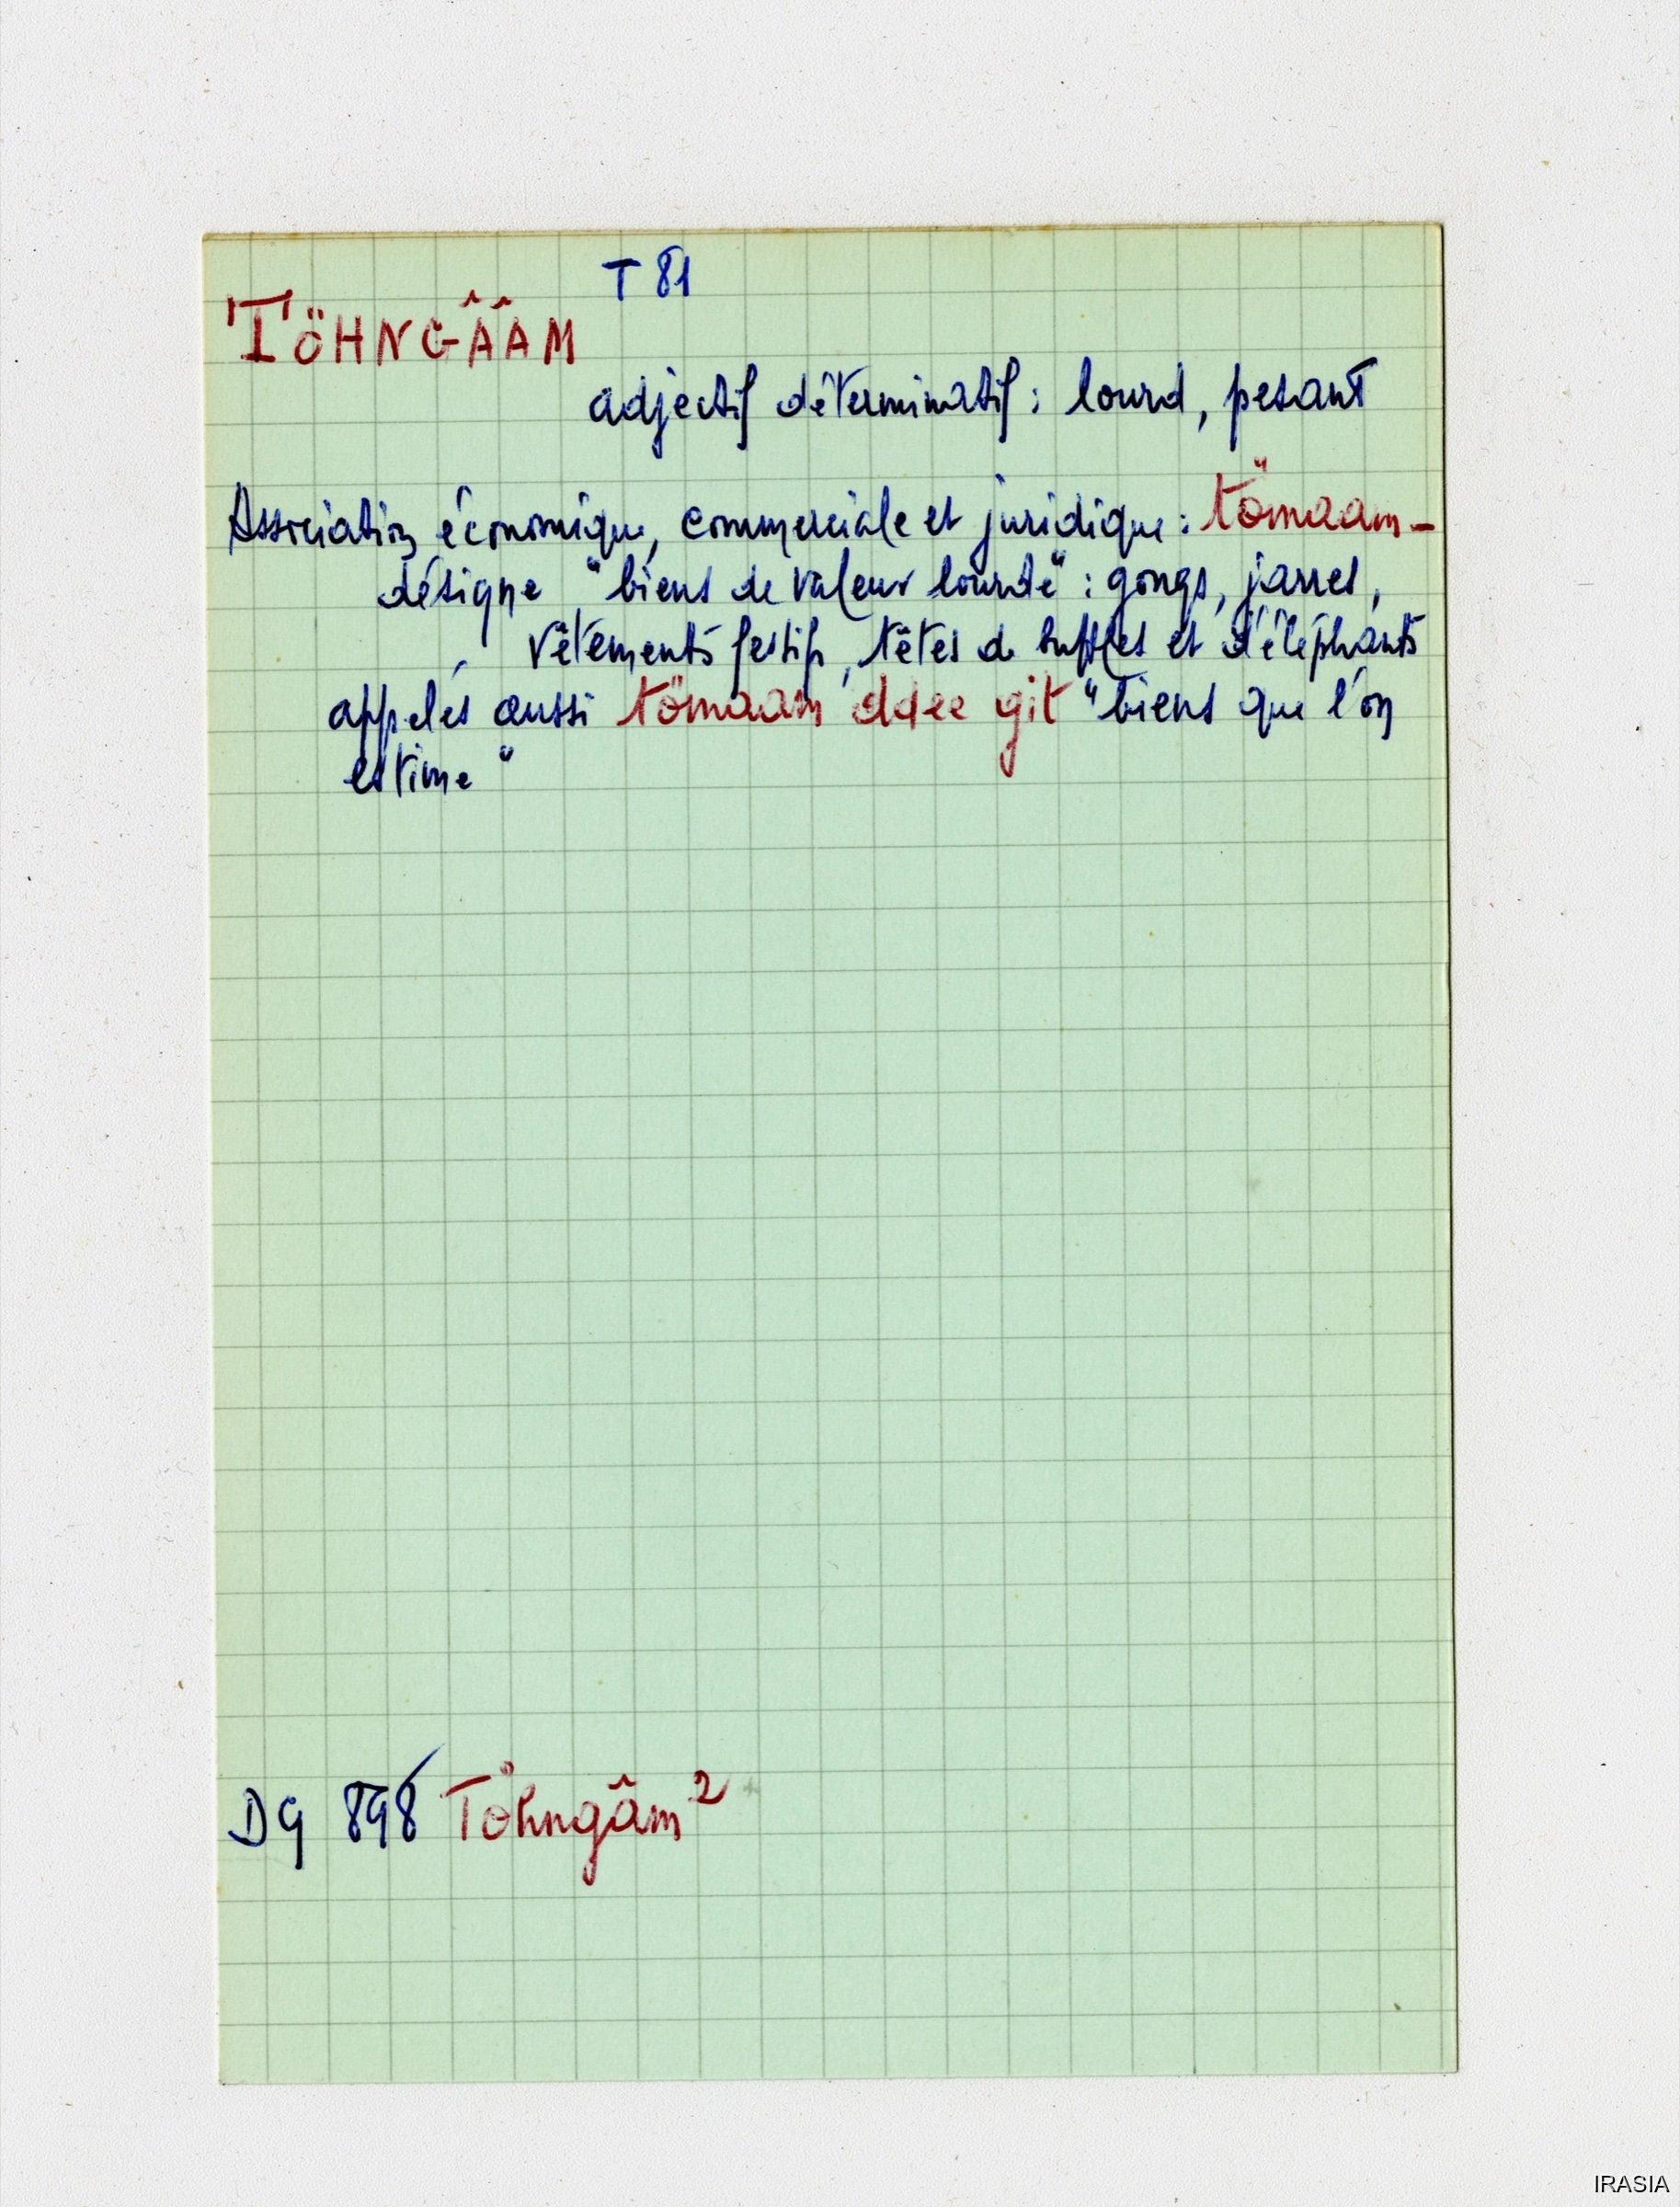 T 81
TÖHNGÂÂM
adjectif déterminatif : lourd, pesant
Association économique, commerciale et juridique : tömaam -
désigne "biens de valeur lourde" : gongs, jarres,
vêtements festifs, têtes de buffles et d'éléphants
appelés aussi tömaam ddee git "biens que l'on
estime"
DG 898 Töhngâm²
IRASIA